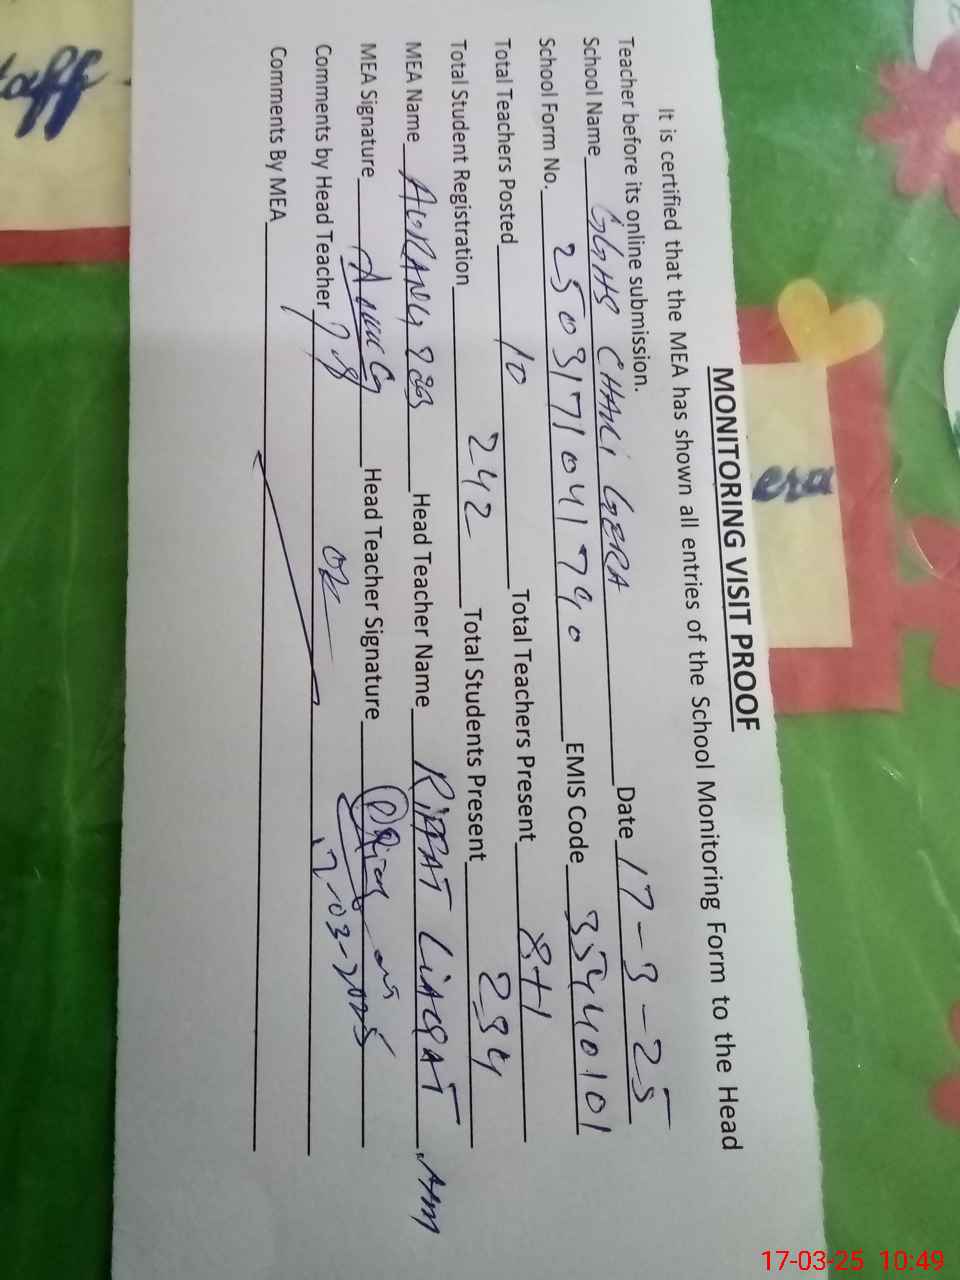 MONITORING VISIT PROOF
It is certified that the MEA has shown all entries of the School Monitoring Form to the Head
Teacher before its online submission.
School Name GGHS CHAKI GERA Date 17-3-25
School Form No. 2503171041790 EMIS Code 35440101
Total Teachers Posted 10 Total Teachers Present 8+1
Total Student Registration 242 Total Students Present 234
MEA Name AURANGZEB Head Teacher Name RIFFAT LIAQAT
MEA Signature Head Teacher Signature
Comments by Head Teacher OK 17-03-2025
Comments By MEA
era
17-03-25 10:49